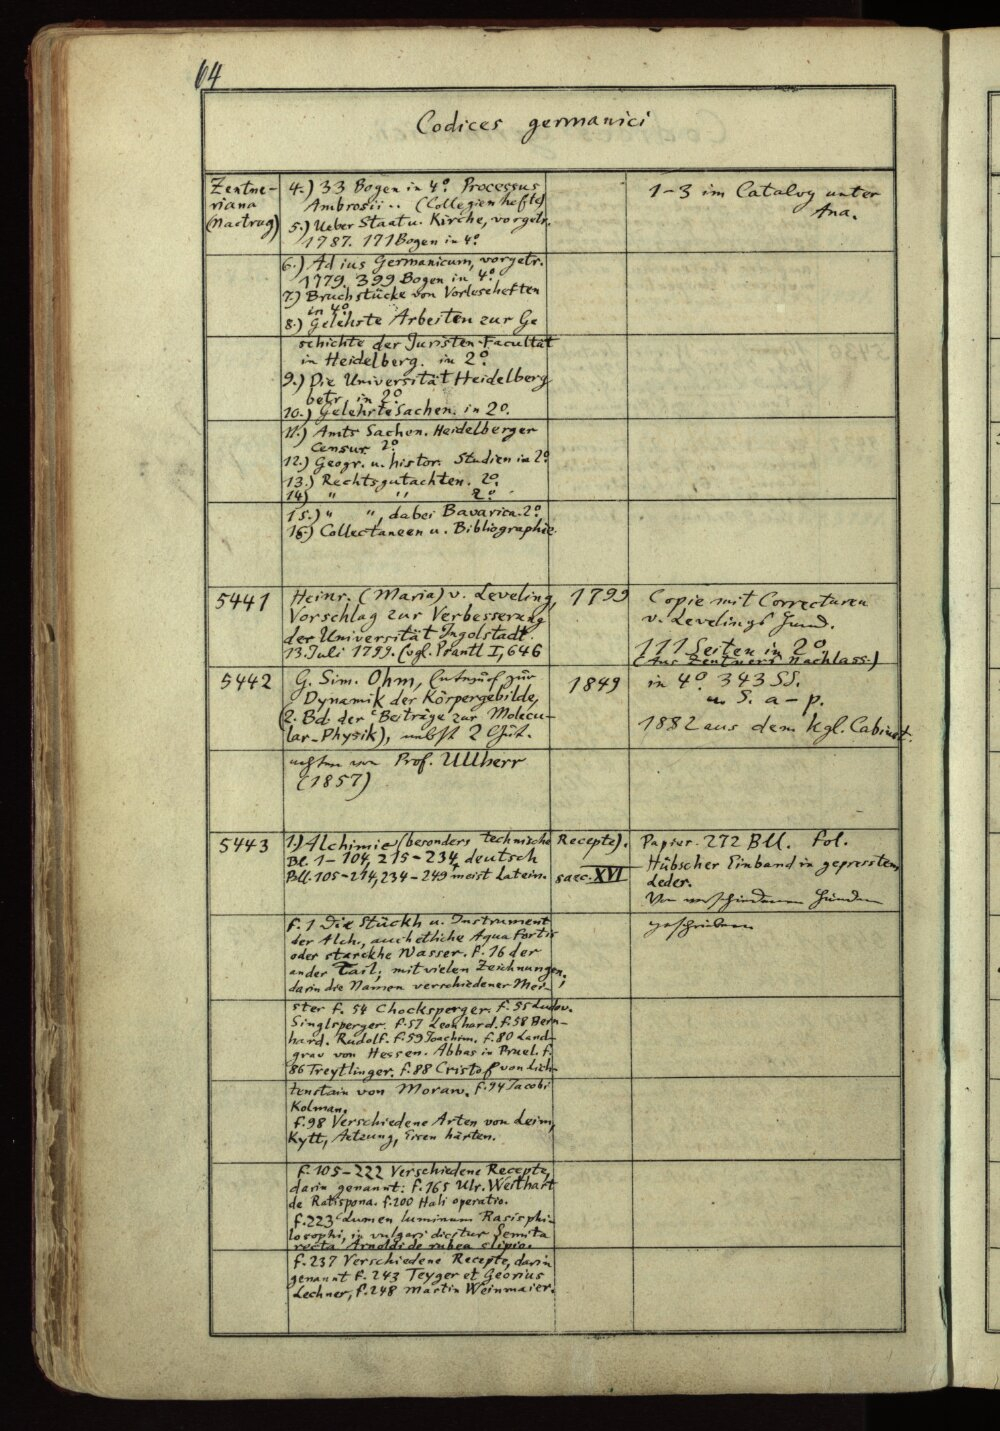 64
Codices germanici
Zentne-
riana
(Nactrag)
4.) 33 Bogen in 4º. Processus
Ambrosii.. (Collegienhefte)
5.) Ueber Staat u. Kirche, vorgetr.
1787. 171 Bogen in 4º.
1-3 im Catalog unter
Ana.
6.) Ad ius Germanicum, vorgetr.
1779. 399 Bogen in 4º.
7.) Bruchstücke von Vorleseheften
in 4º.
8.) Gelehrte Arbeiten zur Ge
schichte der Juristen-Facultät
in Heidelberg. in 2º.
9.) Die Universität Heidelberg
betr. in 2º.
10.) Gelehrte Sachen. in 2º.
11.) Amts Sachen. Heidelberger
Censur. 2º.
12.) Geogr. u. histor. Studien in 2º
13.) Rechtsgutachten. 2º.
14) " " 2º.
15.) " ", dabei Bavarica. 2º.
16.) Collectaneen u. Bibliographie
5441
Heinr. (Maria) v. Leveling,
Vorschlag zur Verbesserung
der Universität Ingolstadt.
13. Juli 1799. (vgl. Prantl I, 646
1799
Copie mit Correcturen
v. Levelings Hand.
111 Seiten in 2º.
(Aus Zentners Nachlass.)
5442
G. Sim. Ohm, Entwurf zur
Dynamik der Körpergebilde,
(2. Bd. der Beiträge zur Molecu-
lar-Physik), nebst 2 Gut-
achten von Prof. Ullherr
(1857)
1849
in 4º. 343 SS.
u. S. a-p.
1882 aus dem Kgl. Cabinet.
5443
1.) Alchimie (besonders technische Recepte).
Bl. 1-104, 215-234 deutsch
Bll. 105-214, 234-249 meist Latein.
saec. XVI
Papier. 272 Bll. Fol.
Hübscher Einband in gepresstem
Leder.
Von verschiedenen Händen
geschrieben
f. 1 Die Stückh u. Instrument
der Alch., auch etliche Aqua fortis
oder starckhe Wasser. f. 16 der
ander Tail; mit vielen Zeichnungen;
darin die Namen verschiedener Mei-
ster f. 54 Chocksperger. f. 55 Ludov.
Singlsperger. f. 57 Leonhard. f. 58 Bern-
hard. Rudolf. f. 59 Joachim. f. 80 Land-
grav von Hessen. Abbas in Pruel. f.
86 Treytlinger. f. 88 Cristof von Lich-
tenstain von Moraw. f. 94 Jacobi
Kolman.
f. 98 Verschiedene Arten von Leim,
Kytt, Aetzung, Eisen härten.
f. 105-222 Verschiedene Recepte,
darin genannt: f. 165 Ulr. Weithart
de Ratispona. f. 200 Hali operatio.
f. 223 Lumen luminum Rasis phi-
losophi, in vulgari dicitur Semita
recta Arnoldi de rubea clipio.
f. 237 Verschiedene Recepte, darin
genannt f. 243 Teyger et Georius
Lechner, f. 248 Martin Weinmaier.